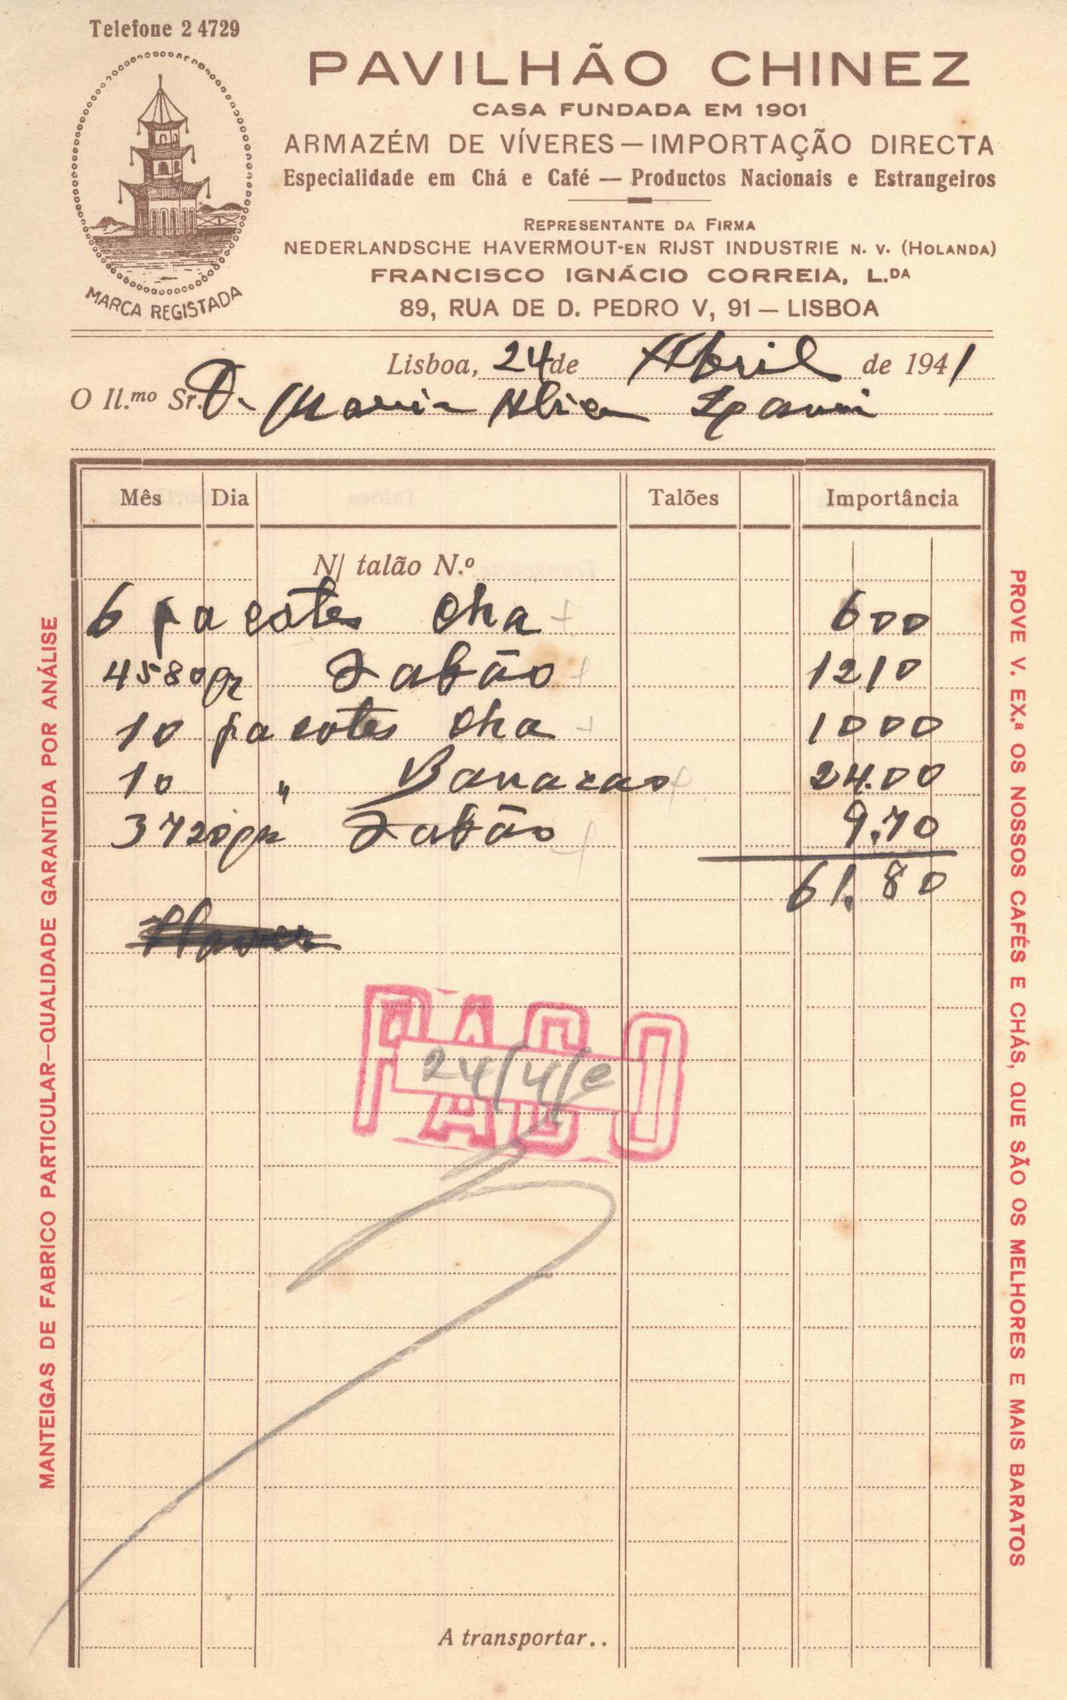 Telefone 2 4729
MARCA REGISTADA
PAVILHÃO CHINEZ
CASA FUNDADA EM 1901
ARMAZÉM DE VÍVERES — IMPORTAÇÃO DIRECTA
Especialidade em Chá e Café — Productos Nacionais e Estrangeiros
REPRESENTANTE DA FIRMA
NEDERLANDSCHE HAVERMOUT-EN RIJST INDUSTRIE N. V. (HOLANDA)
FRANCISCO IGNÁCIO CORREIA, L.DA
89, RUA DE D. PEDRO V, 91 — LISBOA
Lisboa, 24 de Abril de 1941
O Il.mo Sr. D. Maria
Mês Dia Talões Importância
N/ talão N.º
6 pacotes Cha 600
4580gr Sabão 1210
10 pacotes Cha 1000
10 " Bananas 24.00
3720gr Sabão 9.70
61.80
PAGO
24/4/
A transportar..
MANTEIGAS DE FABRICO PARTICULAR—QUALIDADE GARANTIDA POR ANÁLISE
PROVE V. EX.ª OS NOSSOS CAFÉS E CHÁS, QUE SÃO OS MELHORES E MAIS BARATOS